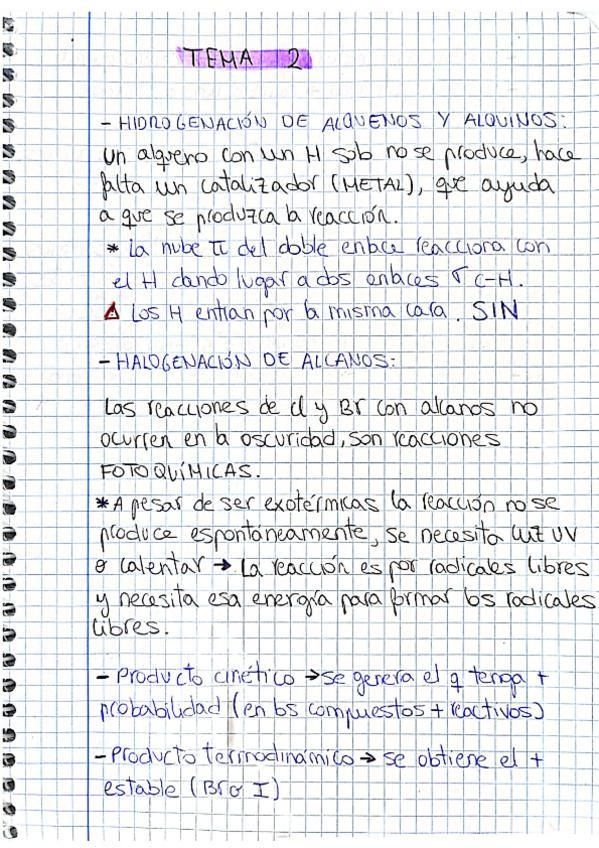 TEMA 2
- HIDROGENACIÓN DE ALQUENOS Y ALQUINOS:
Un alqueno con un H solo no se produce, hace
falta un catalizador (METAL), que ayuda
a que se produzca la reacción.
* La nube π del doble enlace reacciona con
el H dando lugar a dos enlaces σ C-H.
⚠ Los H entran por la misma cara. SIN
- HALOGENACIÓN DE ALCANOS:
Las reacciones de Cl y Br con alcanos no
ocurren en la oscuridad, son reacciones
FOTOQUÍMICAS.
* A pesar de ser exotérmicas la reacción no se
produce espontáneamente, se necesita luz UV
o calentar → La reacción es por radicales libres
y necesita esa energía para formar los radicales
libres.
- Producto cinético → se genera el q tenga +
probabilidad (en los compuestos + reactivos)
- Producto termodinámico → se obtiene el +
estable (Br o I)